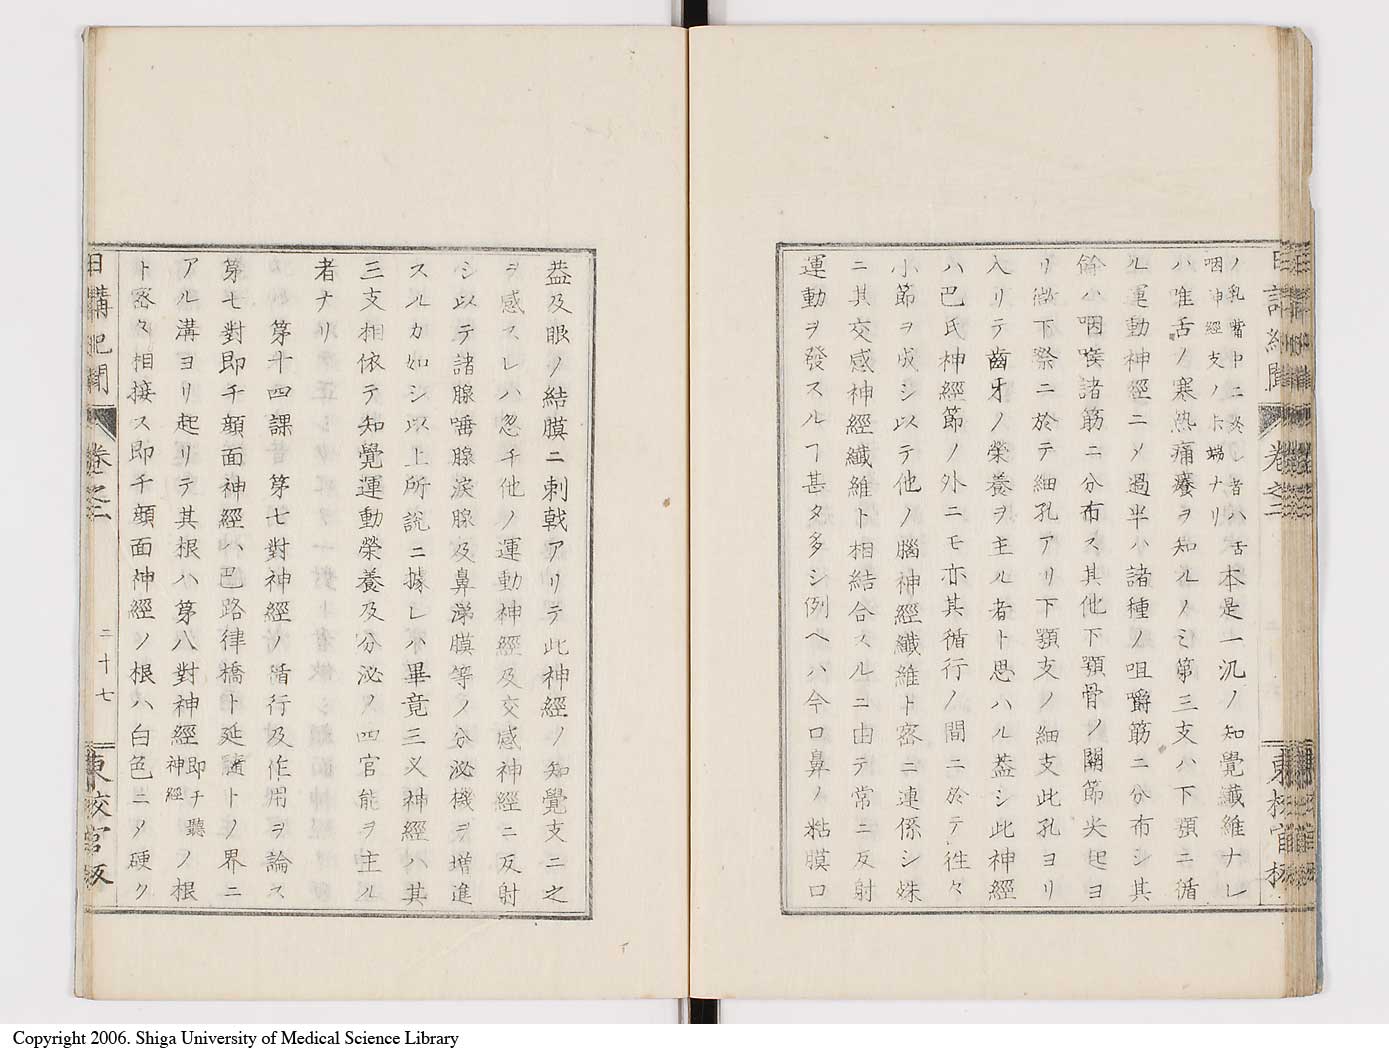 日講紀聞 卷之二 東校官板
ノ乳嘴中ニ終シ者ハ舌
咽神經支ノ末端ナリ
本是一汎ノ知覺纖維ナレ
ハ唯舌ノ寒熱痛癢ヲ知ルノミ第三支ハ下顎ニ循
ル運動神徑ニメ過半ハ諸種ノ咀嚼筋ニ分布シ其
餘ハ咽喉諸筋ニ分布ス其他下顎骨ノ關節尖起ヨ
リ微下際ニ於テ細孔アリ下顎支ノ細支此孔ヨリ
入リテ齒牙ノ榮養ヲ主ル者ト思ハル葢シ此神經
ハ巴氏神經節ノ外ニモ亦其循行ノ間ニ於テ徃々
小節ヲ成シ以テ他ノ腦神經纖維ト密ニ連係シ殊
ニ其交感神經纖維ト相結合スルニ由テ常ニ反射
運動ヲ發スルヿ甚タ多シ例ヘハ今口鼻ノ粘膜口
葢及眼ノ結膜ニ刺戟アリテ此神經ノ知覺支ニ之
ヲ感スレハ忽チ他ノ運動神經及交感神經ニ反射
シ以テ諸腺唾腺淚腺及鼻涕膜等ノ分泌機ヲ增進
スルカ如シ以上所說ニ據レハ畢竟三叉神經ハ其
三支相依テ知覺運動榮養及分泌ノ四官能ヲ主ル
者ナリ
第十四課 第七對神經ノ循行及作用ヲ論ス
第七對即チ顔面神經ハ巴路律橋ト延髓トノ界ニ
アル溝ヨリ起リテ其根ハ第八對神經
即チ聽
神經
ノ根
ト密々相接ス即チ顔面神經ノ根ハ白色ニメ硬ク
日講紀聞 卷之二 二十七 東校官板
Copyright 2006. Shiga University of Medical Science Library